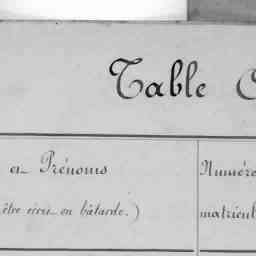 Table
et Prénoms
être écrits en bâtarde.)
Numéro
matricul